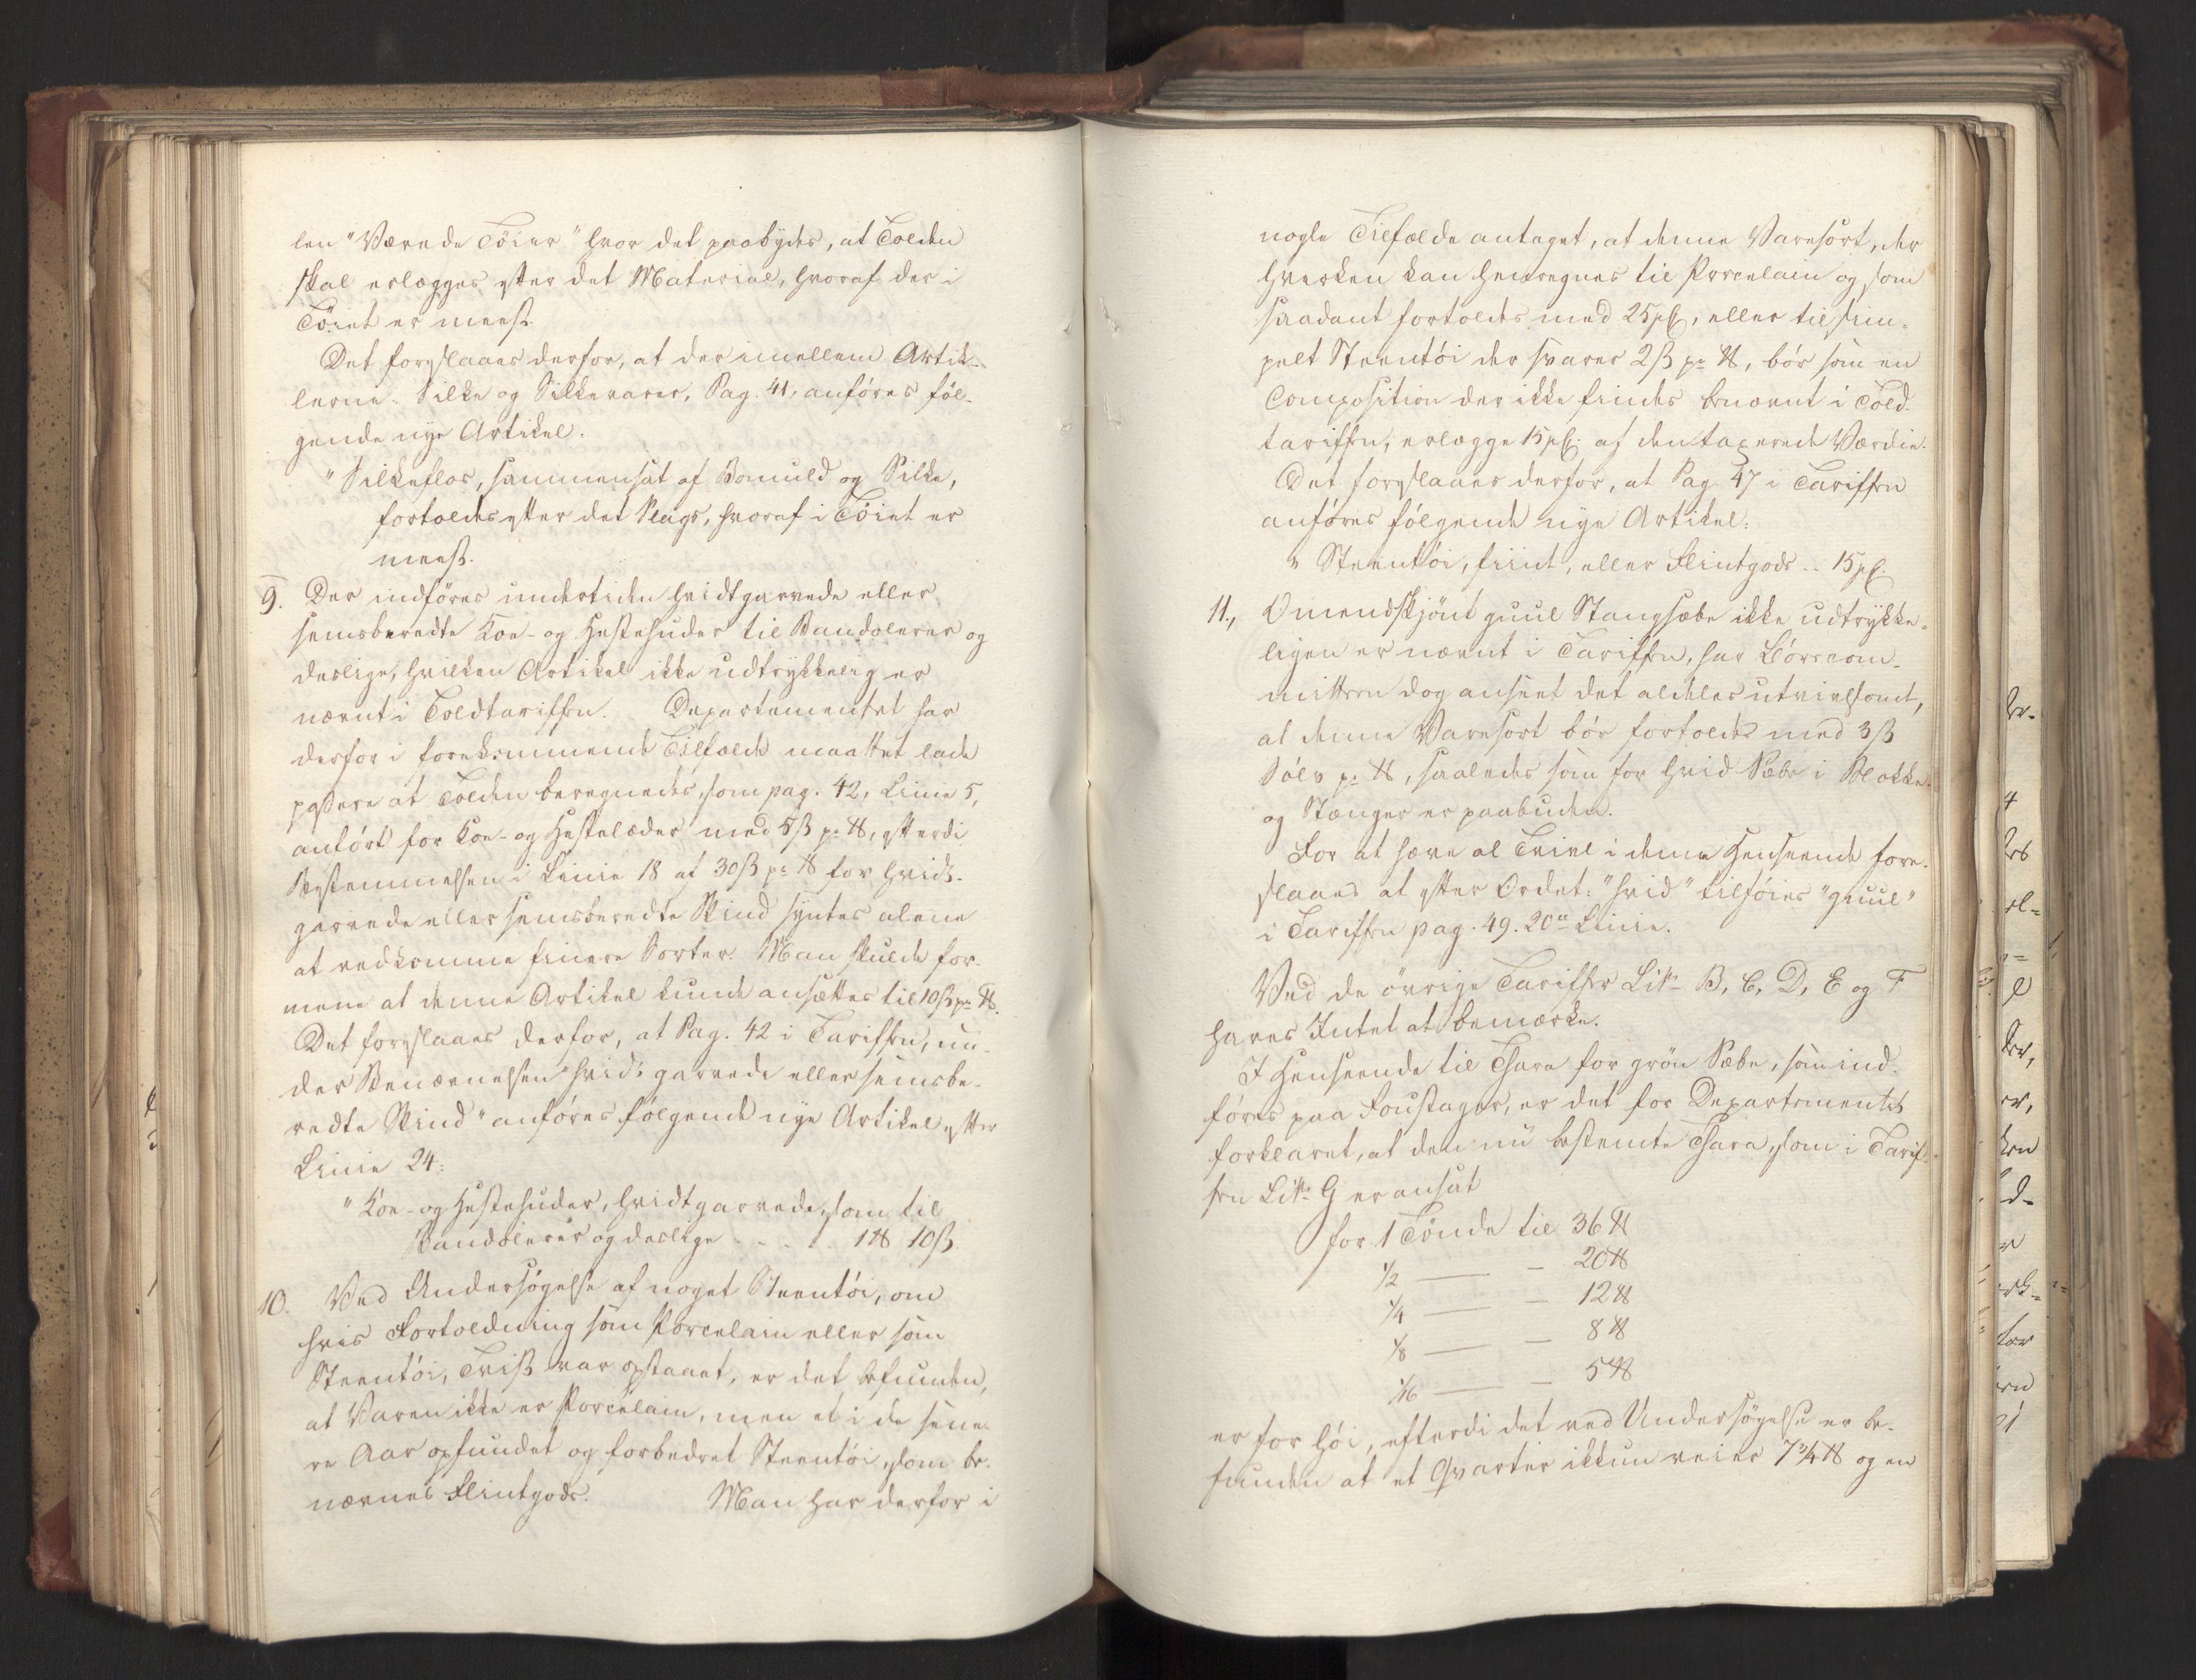 len "Værende Tøier" hvor det paabydes, at Tolden
skal erlægges efter det Material, hvoraf der i
Tøiet er meest.
Det foreslaaes derfor, at der imellem Artik-
lerne: Silke og Silkevarer, Pag. 41, anføres føl-
gende nye Artikel.
"Silkeflor, sammensat af Bomuld og Silke,
fortoldes efter det Slags, hvoraf i Tøiet er
meest.
9. Der indføres undertiden hvidtgarvede eller
semsberedte Koe- og Hestehuder til Bandolerer og
deslige, hvilken Artikel ikke udtrykkelig er
nævnt i Toldtariffen. Departementet har
derfor i forekommende Tilfælde maattet lade
passere at Tolden beregnedes, som pag. 42, Linie 5,
anført for Koe- og Hestelæder med 5 ß pr ℔, efterdi
Bestemmelsen i Linie 18 af 30 ß pr ℔ for hvidt-
garvede eller semsberedte Skind syntes alene
at vedkomme finere Sorter. Man skulde for-
mene at denne Artikel kunde ansættes til 10 ß pr ℔.
Det foreslaaes derfor, at Pag. 42 i Tariffen, un-
der Benævnelsen "hvidtgarvede eller semsbe-
redte Skind" anføres følgende nye Artikel efter
Linie 24:
"Koe- og Hestehuder, hvidtgarvede, som til
Bandolerer og deslige - - - - 1 ℔ 10 ß.
10. Ved Undersøgelse af noget Steentøi, om
hvis Fortoldning som Porcelain eller som
Steentøi, Tvist var opstaaet, er det befunden,
at Varen ikke er Porcelain, men et i de sene-
re Aar opfundet og forbedret Steentøi, som be-
nævnes Flintgods. Man har derfor i
nogle Tilfælde antaget, at denne Varesort, der
hverken kan henregnes til Porcelain og som
saadant fortoldes med 25 pC, eller til sim-
pelt Steentøi der svarer 2 ß pr ℔, bør som en
Composition der ikke findes benævnt i Told-
tariffen, erlægge 15 pC. af den taxerede Værdie.
Det foreslaaes derfor, at Pag. 47 i Tariffen
anføres følgende nye Artikel:
" Steentøi, fiint, eller Flintgods .. 15 pC.
11., Omendskjønt guul Stangsæbe ikke udtrykke-
ligen er nævnt i Tariffen, har Børscom-
mitteen dog anseet det aldeles utvivlsomt,
at denne Varesort bør fortoldes med 3 ß
Sølv pr ℔, saaledes som for hvid Sæbe i Blokke
og Stænger er paabuden.
For at hæve al Tvivl i denne Henseende fore-
slaaes at efter Ordet: "hvid" tilføies "guul"
i Tariffen pag. 49. 20de Linie.
Ved de øvrige Tariffer Litr B, C, D, E og F
haves Intet at bemærke.
I Henseende til Thara for grøn Sæbe, som ind-
føres paa Foustager, er det for Departementet
forklaret, at den nu bestemte Thara, som i Tarif-
fen Litr: G er ansat
for 1 Tønde til 36 ℔
1/2 — - 20 ℔
1/4 — - 12 ℔
1/8 — - 8 ℔
1/16 — - 5 ℔
er for høi, efterdi det ved Undersøgelse er be-
funden at et Qvarter ikkun veier 7 3/4 ℔ og en